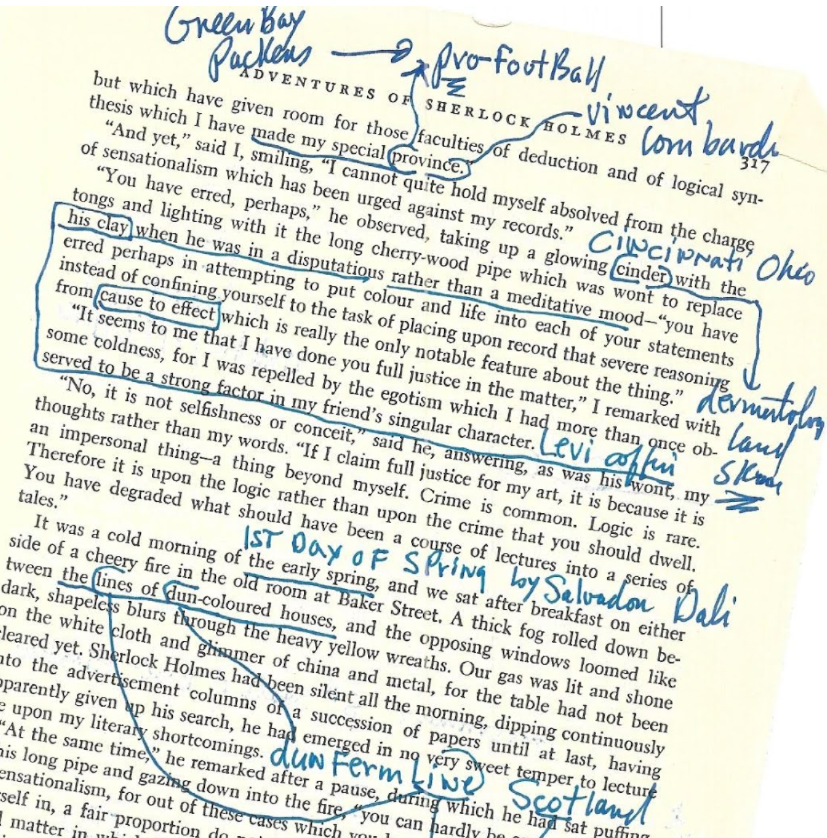 Green Bay
Packers
pro-FootBall
ADVENTURES OF SHERLOCK HOLMES
317
vincent
Lombardi
but which have given room for those faculties of deduction and of logical syn-
thesis which I have made my special province."
"And yet," said I, smiling, "I cannot quite hold myself absolved from the charge
of sensationalism which has been urged against my records."
"You have erred, perhaps," he observed, taking up a glowing cinder with the
CINCINNATI Ohio
tongs and lighting with it the long cherry-wood pipe which was wont to replace
his clay when he was in a disputatious rather than a meditative mood—"you have
erred perhaps in attempting to put colour and life into each of your statements
instead of confining yourself to the task of placing upon record that severe reasoning
from cause to effect which is really the only notable feature about the thing."
"It seems to me that I have done you full justice in the matter," I remarked with
some coldness, for I was repelled by the egotism which I had more than once ob-
served to be a strong factor in my friend's singular character.
Levi coffin
dermatology
land
Skin
"No, it is not selfishness or conceit," said he, answering, as was his wont, my
thoughts rather than my words. "If I claim full justice for my art, it is because it is
an impersonal thing—a thing beyond myself. Crime is common. Logic is rare.
Therefore it is upon the logic rather than upon the crime that you should dwell.
You have degraded what should have been a course of lectures into a series of
tales."
1ST DAY OF SPRING by Salvador Dali
It was a cold morning of the early spring, and we sat after breakfast on either
side of a cheery fire in the old room at Baker Street. A thick fog rolled down be-
tween the lines of dun-coloured houses, and the opposing windows loomed like
dark, shapeless blurs through the heavy yellow wreaths. Our gas was lit and shone
on the white cloth and glimmer of china and metal, for the table had not been
cleared yet. Sherlock Holmes had been silent all the morning, dipping continuously
into the advertisement columns of a succession of papers until at last, having
apparently given up his search, he had emerged in no very sweet temper to lecture
upon my literary shortcomings.
dunfermLine Scotland
"At the same time," he remarked after a pause, during which he had sat puffing
his long pipe and gazing down into the fire, "you can hardly be
sensationalism, for out of these cases which you
self in, a fair proportion do
matter in which